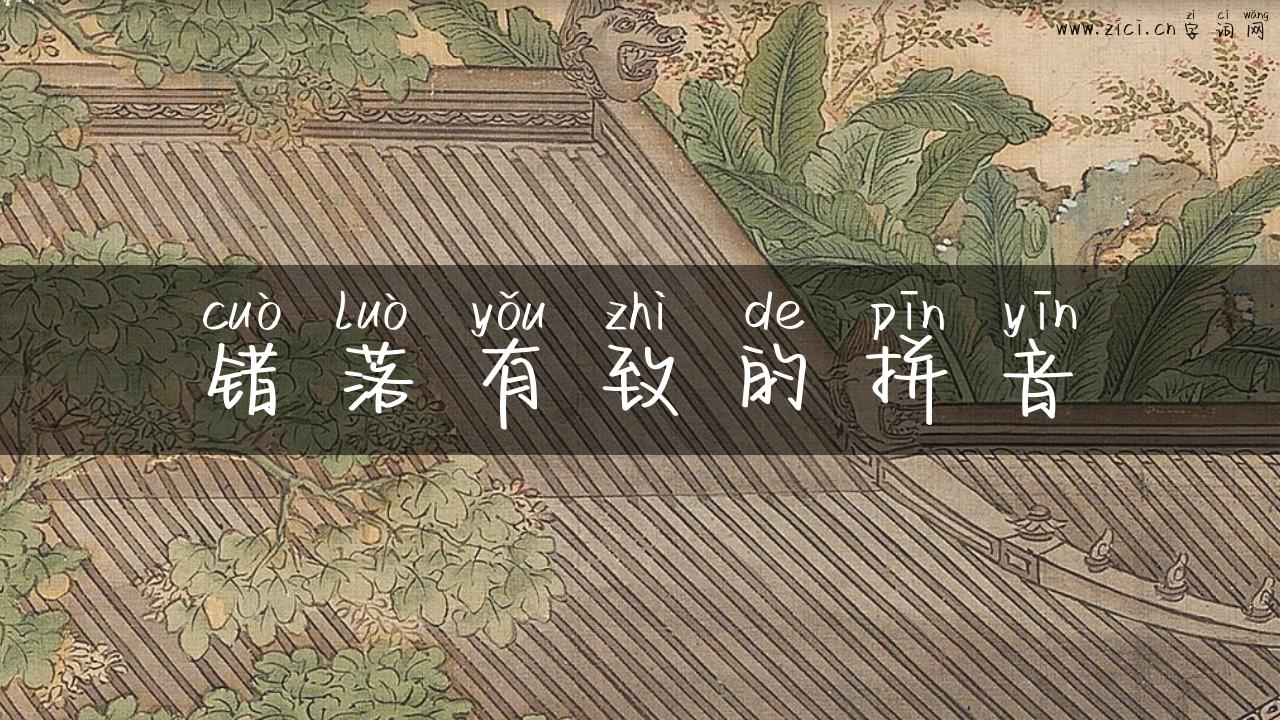 zì cí wǎng
www.zici.cn 字词网
cuò luò yǒu zhì de pīn yīn
错落有致的拼音